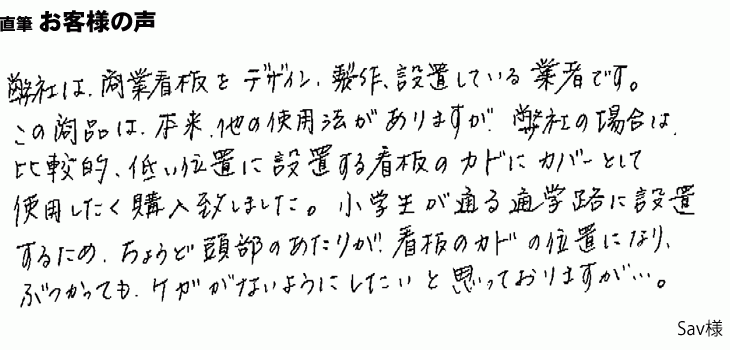 直筆 お客様の声
弊社は、商業看板をデザイン、製作、設置している業者です。
この商品は、本来、他の使用法がありますが、弊社の場合は、
比較的、低い位置に設置する看板のカドにカバーとして
使用したく購入致しました。小学生が通る通学路に設置
するため、ちょうど頭部のあたりが、看板のカドの位置になり、
ぶつかっても、ケガがないようにしたいと思っておりますが…。
Sav様